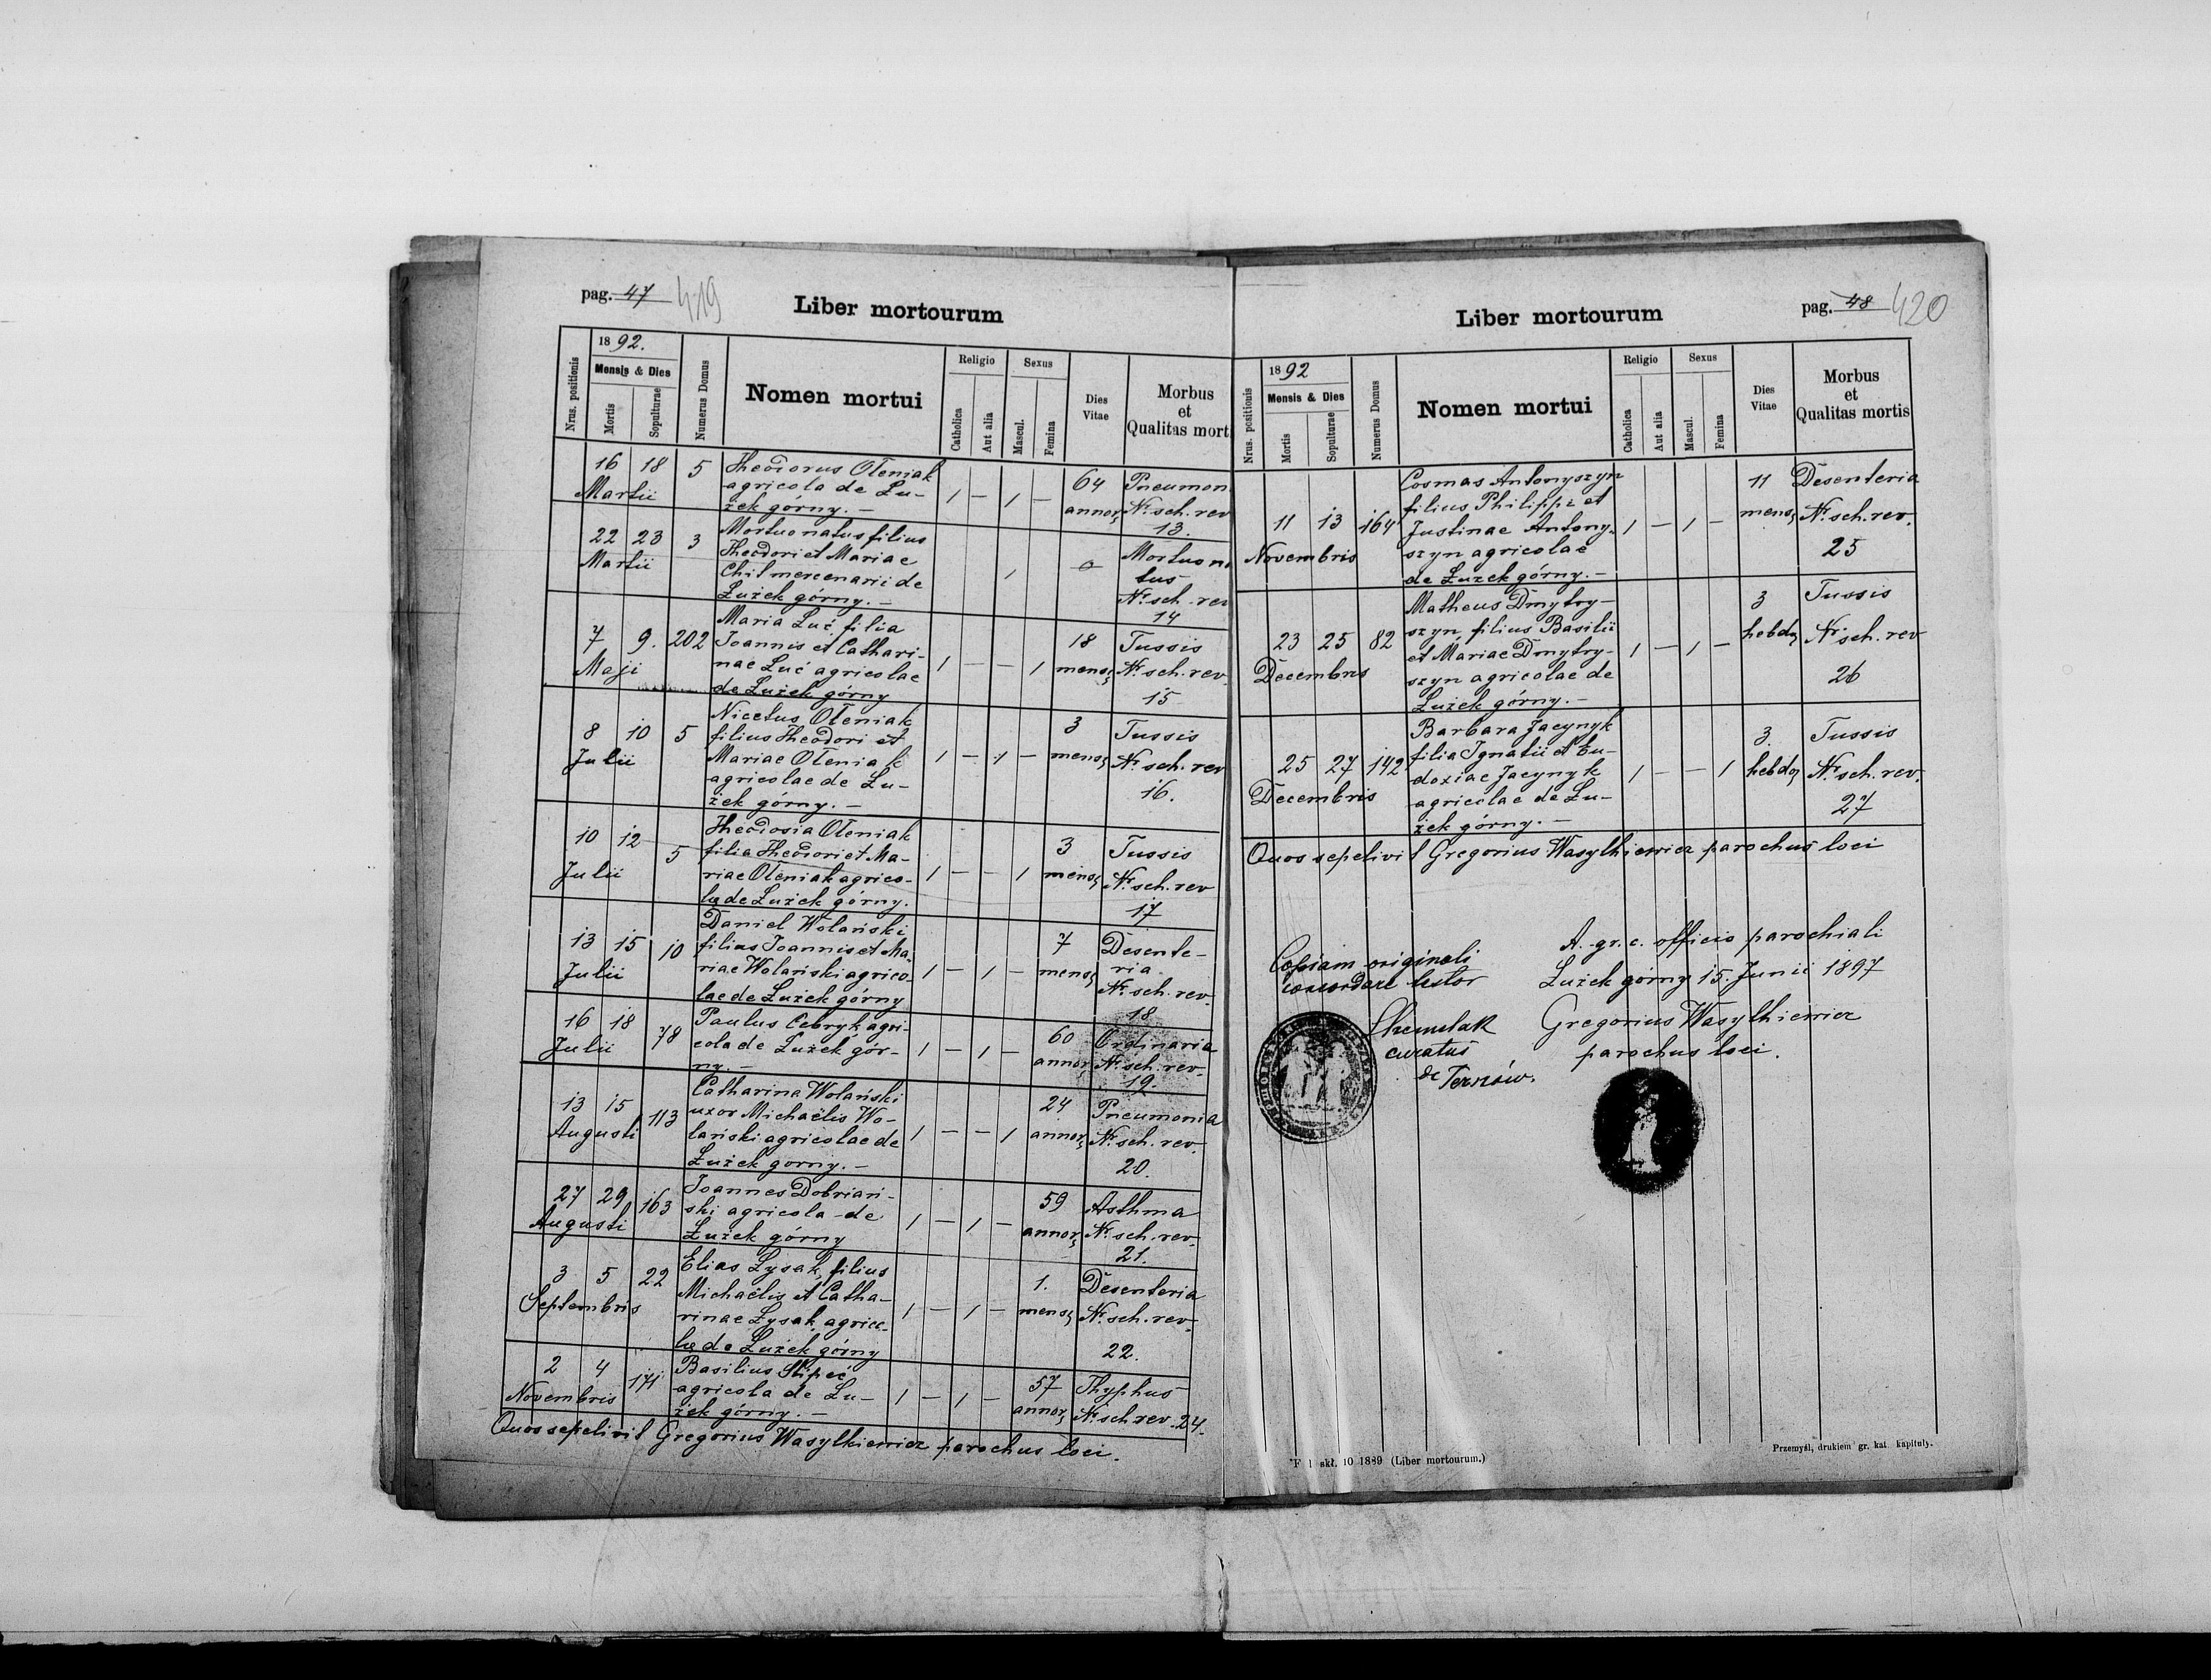 pag. 47 419
Liber mortourum
1892.
Nrus. positionis
Mensis & Dies
Mortis
Sepulturae
Numerus Domus
Nomen mortui
Religio
Catholica
Aut alia
Sexus
Mascul.
Femina
Dies
Vitae
Morbus
et
Qualitas mort
16 18 5 Theodorus Oleniak
agricola de Łu-
żek górny. —
Martii
1 — 1 —
64
annor
Pneumon
Nr. sch. rev
13.
22 23 3 Mortuonatus filius
Theodori et Mariae
Chil mercenarii de
Łużek górny. —
Martii
1
0
Mortuona
tus
Nr. sch. rev
14
7 9. 202 Maria Łuć filia
Joannis et Cathari-
nae Łuć agricolae
de Łużek górny
Maji
1 — — 1
18
mens
Tussis
Nr. sch. rev.
15
8 10 5 Nicetus Oleniak
filius Theodori et
Mariae Oleniak
agricolae de Łu-
żek górny. —
Julii
1 — 1 —
3
mens
Tussis
Nr. sch. rev
16.
10 12 5 Theodosia Oleniak
filia Theodori et Ma-
riae Oleniak agrico-
lę de Łużek górny.
Julii
1 — — 1
3
mens
Tussis
Nr. sch. rev
17
13 15 10 Daniel Wolański
filius Joannis et Ma-
riae Wolański agrico-
lae de Łużek górny
Julii
1 — 1 —
7
mens
Desente-
ria
Nr. sch. rev.
18
16 18 78 Paulus Cebryk agri-
cola de Łużek gór-
ny. —
Julii
1 — 1 —
60
annor
Ordinaria
Nr. sch. rev.
19.
13 15 113 Catharina Wolański
uxor Michaëlis Wo-
lański agricolae de
Łużek gorny. —
Augusti
1 — — 1
24
annor
Pneumonia
Nr. sch. rev.
20.
27 29 163 Joannes Dobriań-
ski agricola de
Łużek górny
Augusti
1 — 1 —
59
annor
Asthma
Nr. sch. rev.
21.
3 5 22 Elias Łysak, filius
Michaëlis et Catha-
rinae Łysak, agrico-
lę de Łużek górny
Septembris
1 — 1 —
1.
mens
Desenteria
Nr. sch. rev.
22.
2 4 171 Basilius
agricola de Łu-
żek górny. —
Novembris
1 — 1 —
57
annor
Thyphus
Nr. sch rev. 24.
Quos sepelivit Gregorius Wasylkiewicz parochus loci.
Liber mortourum
pag. 48 420
1892
Nrus. positionis
Mensis & Dies
Mortis
Sepulturae
Numerus Domus
Nomen mortui
Religio
Catholica
Aut alia
Sexus
Mascul.
Femina
Dies
Vitae
Morbus
et
Qualitas mortis
11 13 164 Cosmas Antonyszyn
filius Philippi et
Justinae Antony-
szyn agricolae
de Łużek górny. —
Novembris
1 — 1 —
11
mens
Desenteria
Nr. sch. rev.
25
23 25 82 Matheus Dmytry-
szyn, filius Basilii
et Mariae Dmytry-
szyn agricolae de
Łużek górny. —
Decembris
1 — 1 —
3
hebd
Tussis
Nr. sch. rev
26
25 27 142 Barbara Jacynyk
filia Ignatii et Eu-
doxiae Jacynyk
agricolae de Łu-
żek górny. —
Decembris
1 — — 1
3.
hebd
Tussis
Nr. sch. rev.
27
Quos sepelivit Gregorius Wasylkiewicz parochus loci
Copiam originali
concordare testor
curatus
de Terszów.
A. gr. c. officio parochiali
Łużek górny 15. Junii 1897
Gregorius Wasylkiewicz
parochus loci.
F 1 skł. 10 1889 (Liber mortourum.)
Przemyśl, drukiem gr. kat. kapituły.